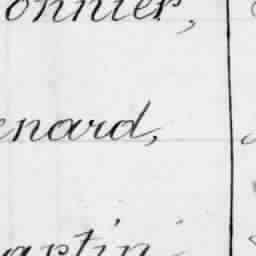 onnier,
enard,
artin